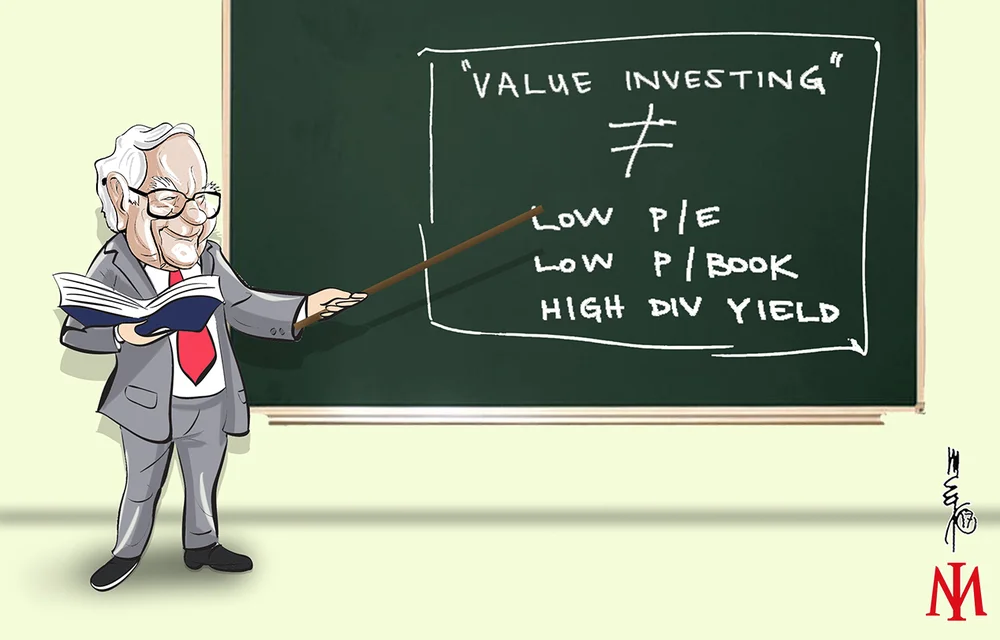 "VALUE INVESTING"
≠
LOW P/E
LOW P/BOOK
HIGH DIV YIELD
17
IM